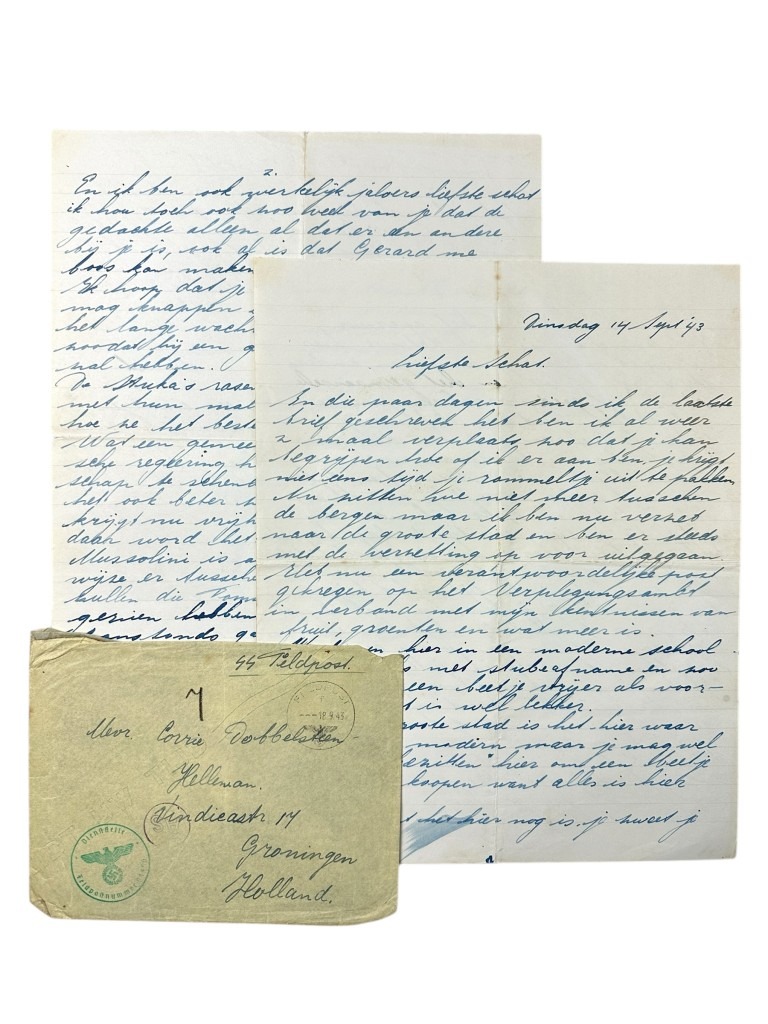 2.
En ik ben ook werkelijk jaloers liefste schat
ik hou toch ook zoo veel van je dat de
gedachte alleen al dat er een andere
bij je is, ook al is dat Gerard me
boos kan maken
Ik hoop dat je
mag knappen
het lange wach
zoodat bij een g
zal hebben.
De Stuka's rasen
met hun mal
hoe ze het beste
Wat een gemee
sche regeering h
schap te schen
het ook beter
krijgt nu vrijh
daar word het
Mussolini is a
wijze er tussche
zullen die
gezien hebben
Dinsdag 14 Sept '43
Liefste Schat.
En die paar dagen sinds ik de laatste
brief geschreven heb ben ik al weer
2 maal verplaats zoo dat je kan
begrijpen hoe of ik er aan ben, je krijgt
niet eens tijd je rommeltje uit te pakken
Nu zitten we niet meer tusschen
de bergen maar ik ben nu verzet
naar de groote stad en ben er steeds
met de verzetting op voor uitgegaan.
Heb nu een verantwoordelijke post
gekregen op het Verplegungsambt
in verband met mijn kentnissen van
fruit, groenten en wat meer is.
hier in een moderne school
met stubeafname en zoo
een beetje vrijer als voor-
t is wel lekker.
roote stad is het hier waar
modern maar je mag wel
bezitten" hier om een beetje
koopen want alles is hier
t het hier nog is, je weet je
SS Feldpost.
7
18.9.43
Mevr. Corrie Dobbelsteen-
Helleman.
Vindicastr 14
Groningen
Holland.
Dienststelle
Feldpostnummer